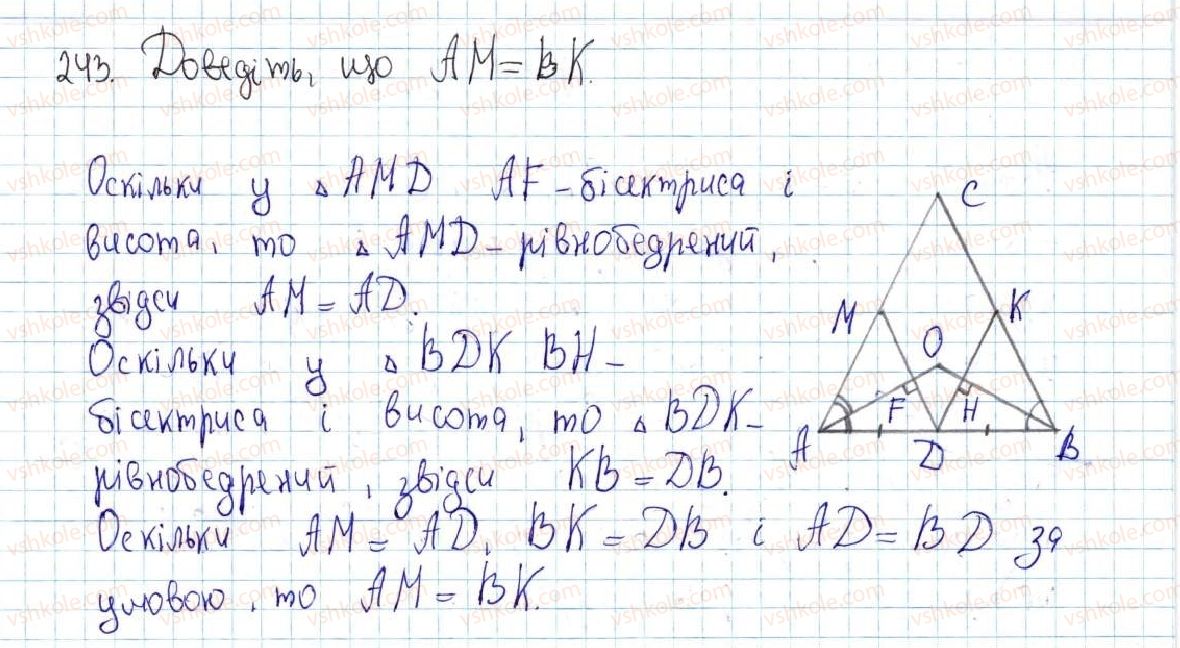 243. Доведіть, що AM = BK.
Оскільки у △ AMD AF – бісектриса і
висота, то △ AMD – рівнобедрений,
звідси AM = AD.
Оскільки у △ BDK BH –
бісектриса і висота, то △ BDK –
рівнобедрений, звідси KB = DB.
Оскільки AM = AD, BK = DB і AD = BD за
умовою, то AM = BK.
C
M
K
O
F
H
A
D
B
vshkole.com